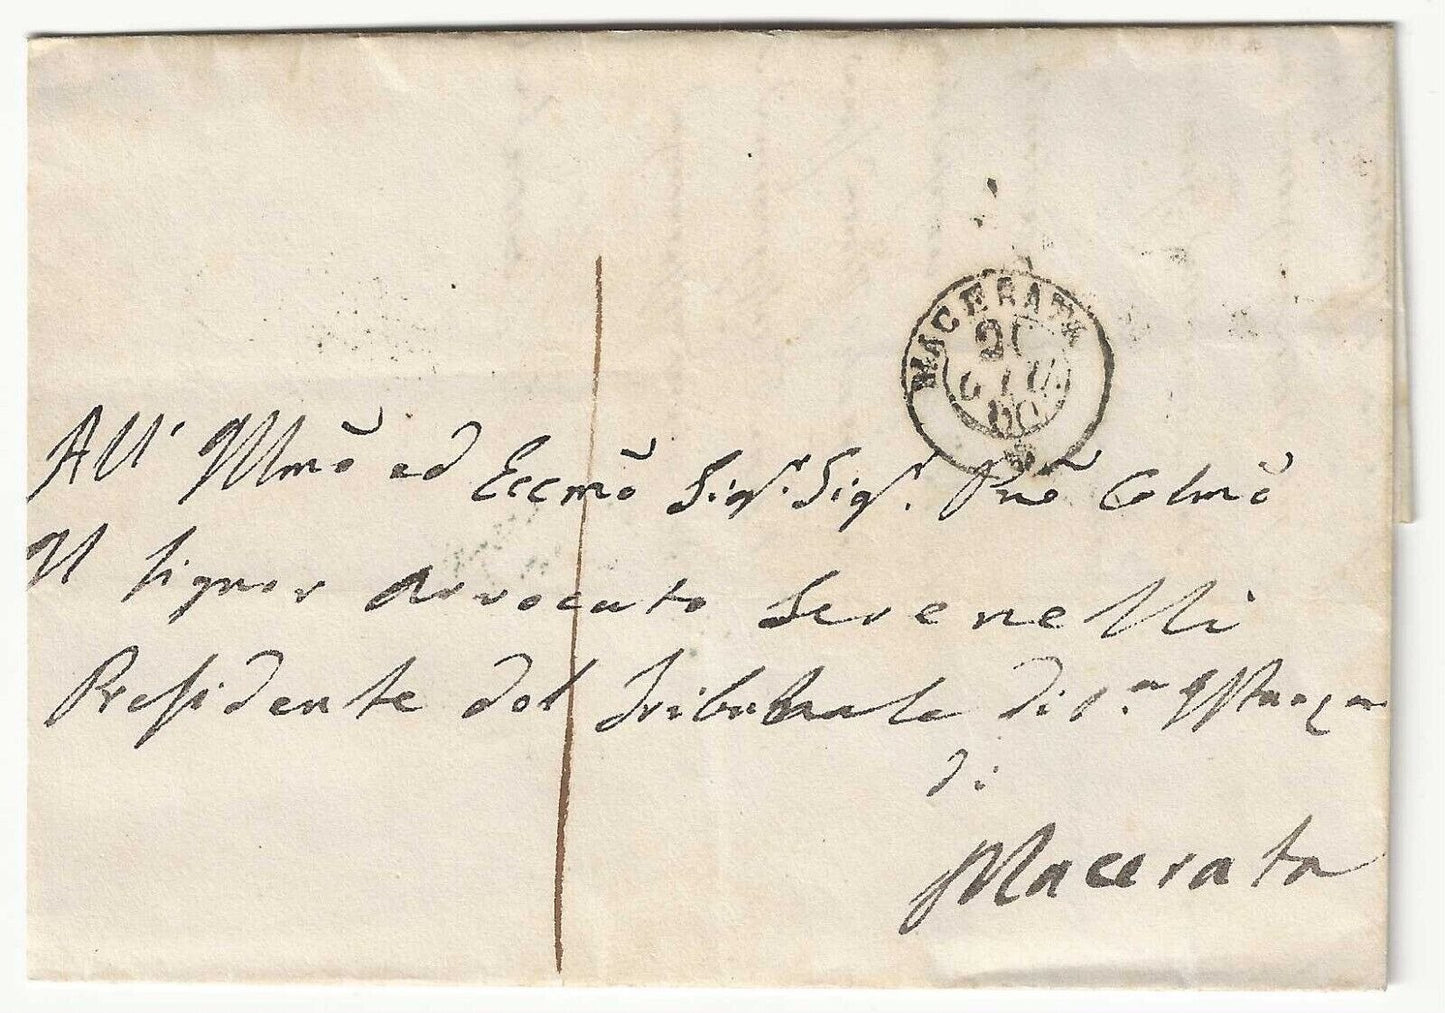 MACERATA
GIU
60
All' Illmō ed Eccmō Sigr. Sigr. Pnē Colmō
Il Signor Avvocato Serenelli
Presidente del Tribunale di Pa. Istanza
di
Macerata